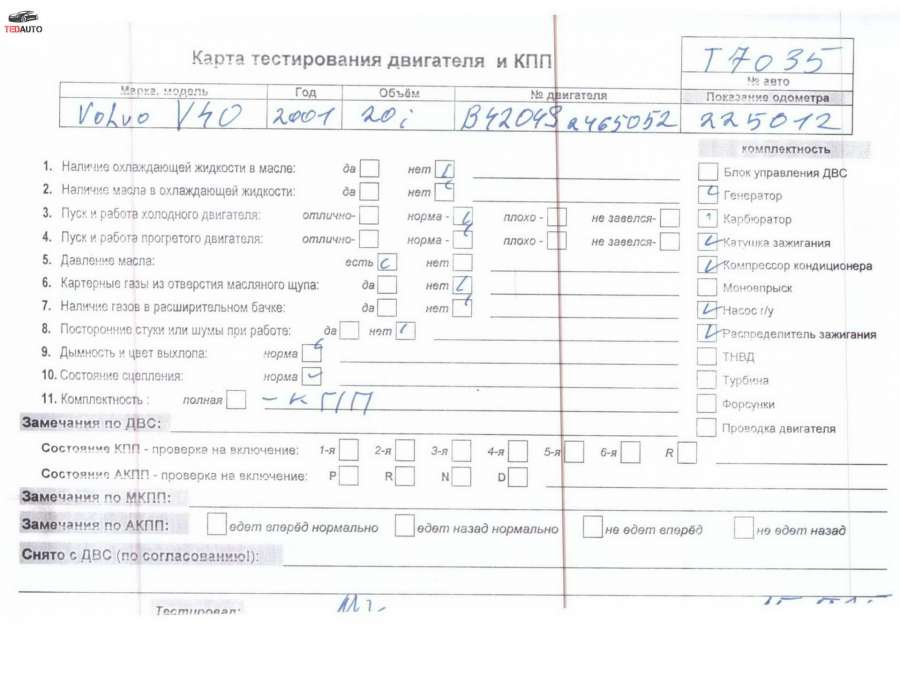 TEDAUTO
Карта тестирования двигателя и КПП
T7035
№ авто
Марка, модель Год Объём № двигателя Показание одометра
Volvo V40 2001 20i B4204S 2465052 225012
комплектность
1. Наличие охлаждающей жидкости в масле: да нет
Блок управления ДВС
2. Наличие масла в охлаждающей жидкости: да нет
Генератор
3. Пуск и работа холодного двигателя: отлично- норма - плохо - не завелся-
Карбюратор
4. Пуск и работа прогретого двигателя: отлично- норма - плохо - не завелся-
Катушка зажигания
5. Давление масла: есть нет
Компрессор кондиционера
6. Картерные газы из отверстия масляного щупа: да нет
Моновпрыск
7. Наличие газов в расширительном бачке: да нет
Насос г/у
8. Посторонние стуки или шумы при работе: да нет
Распределитель зажигания
9. Дымность и цвет выхлопа: норма
ТНВД
10. Состояние сцепления: норма
Турбина
11. Комплектность : полная - КПП
Форсунки
Замечания по ДВС:
Проводка двигателя
Состояние КПП - проверка на включение: 1-я 2-я 3-я 4-я 5-я 6-я R
Состояние АКПП - проверка на включение: P R N D
Замечания по МКПП:
Замечания по АКПП: едет вперёд нормально едет назад нормально не едет вперёд не едет назад
Снято с ДВС (по согласованию!):
Тестировал: